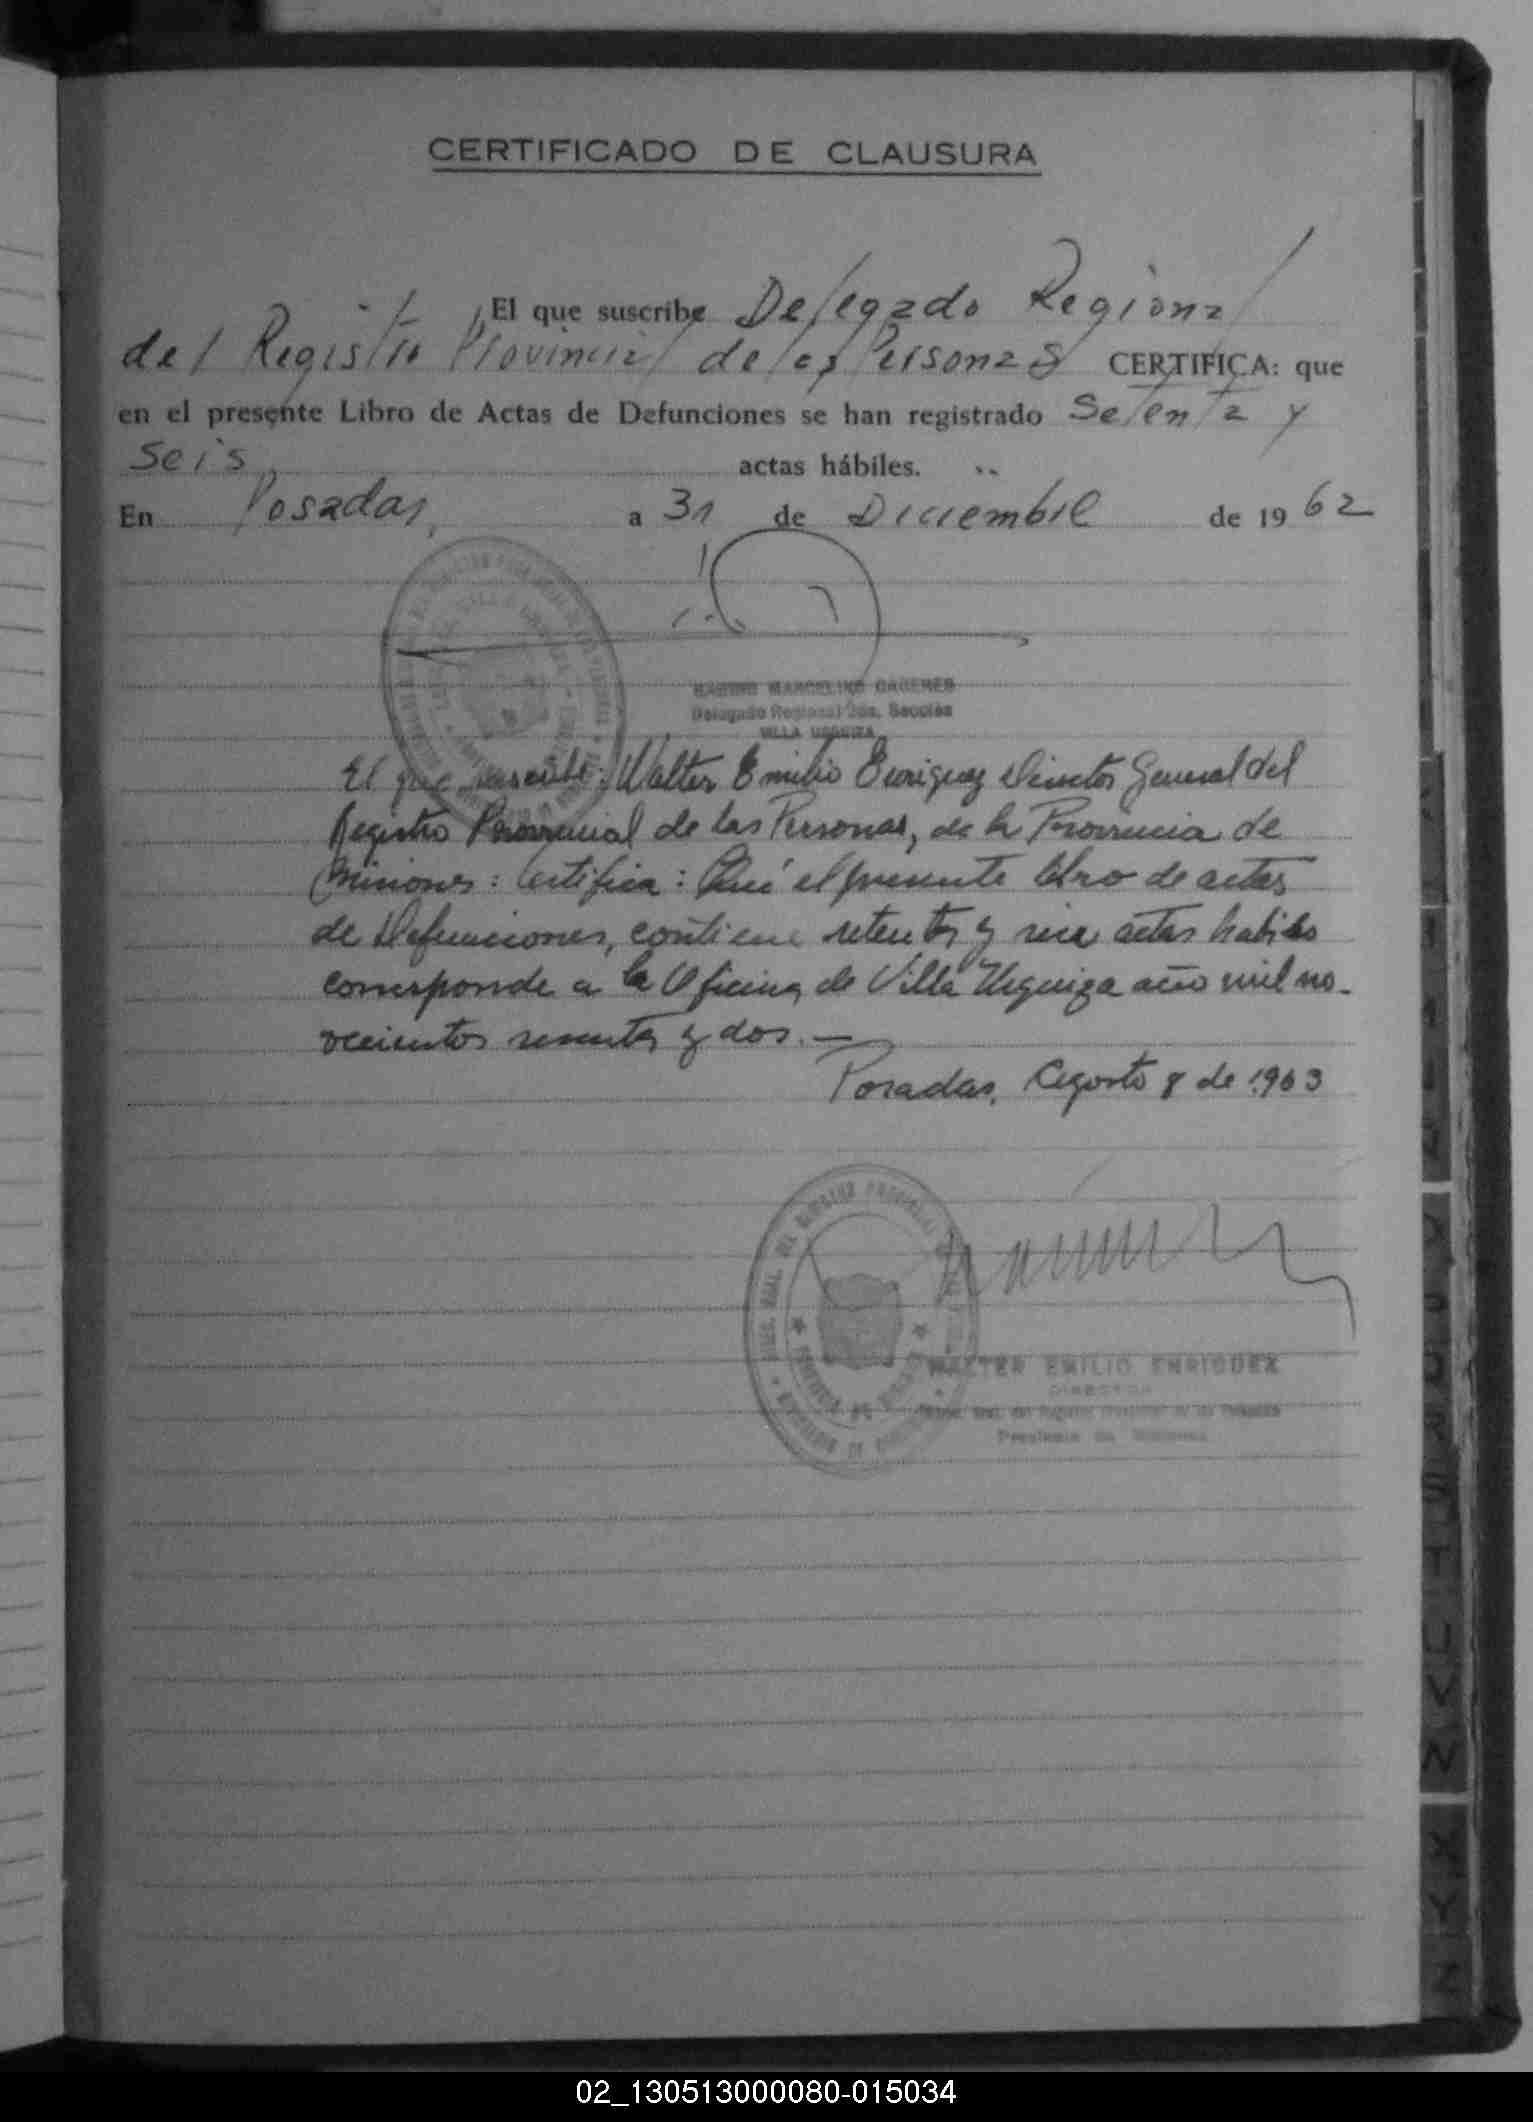 CERTIFICADO DE CLAUSURA
El que suscribe Delegado Regional
del Registro Provincial de las Personas CERTIFICA: que
en el presente Libro de Actas de Defunciones se han registrado Setenta y
Seis actas hábiles.
En Posadas, a 31 de Diciembre de 1962
MARCELINO
Delegado Regional 2da. Sección
VILLA URQUIZA
El que suscribe: Walter Emilio Enriquez Director General del
Registro Provincial de las Personas, de la Provincia de
Misiones: Certifica: Que el presente libro de actas
de Defunciones, contiene setenta y seis actas habiles
corresponde a la Oficina de Villa Urquiza año mil no-
vecientos sesenta y dos.—
Posadas, Agosto 8 de 1963
WALTER EMILIO ENRIQUEZ
DIRECTOR
Gral. del Registro Provincial de las Personas
Provincia de Misiones
PROVINCIA DE MISIONES
X
Y
Z
02_130513000080-015034